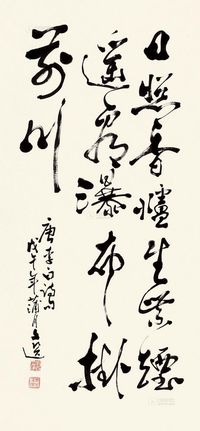 日照香爐生紫煙
遥看瀑布掛
前川
唐李白詩
戊午年蒲月